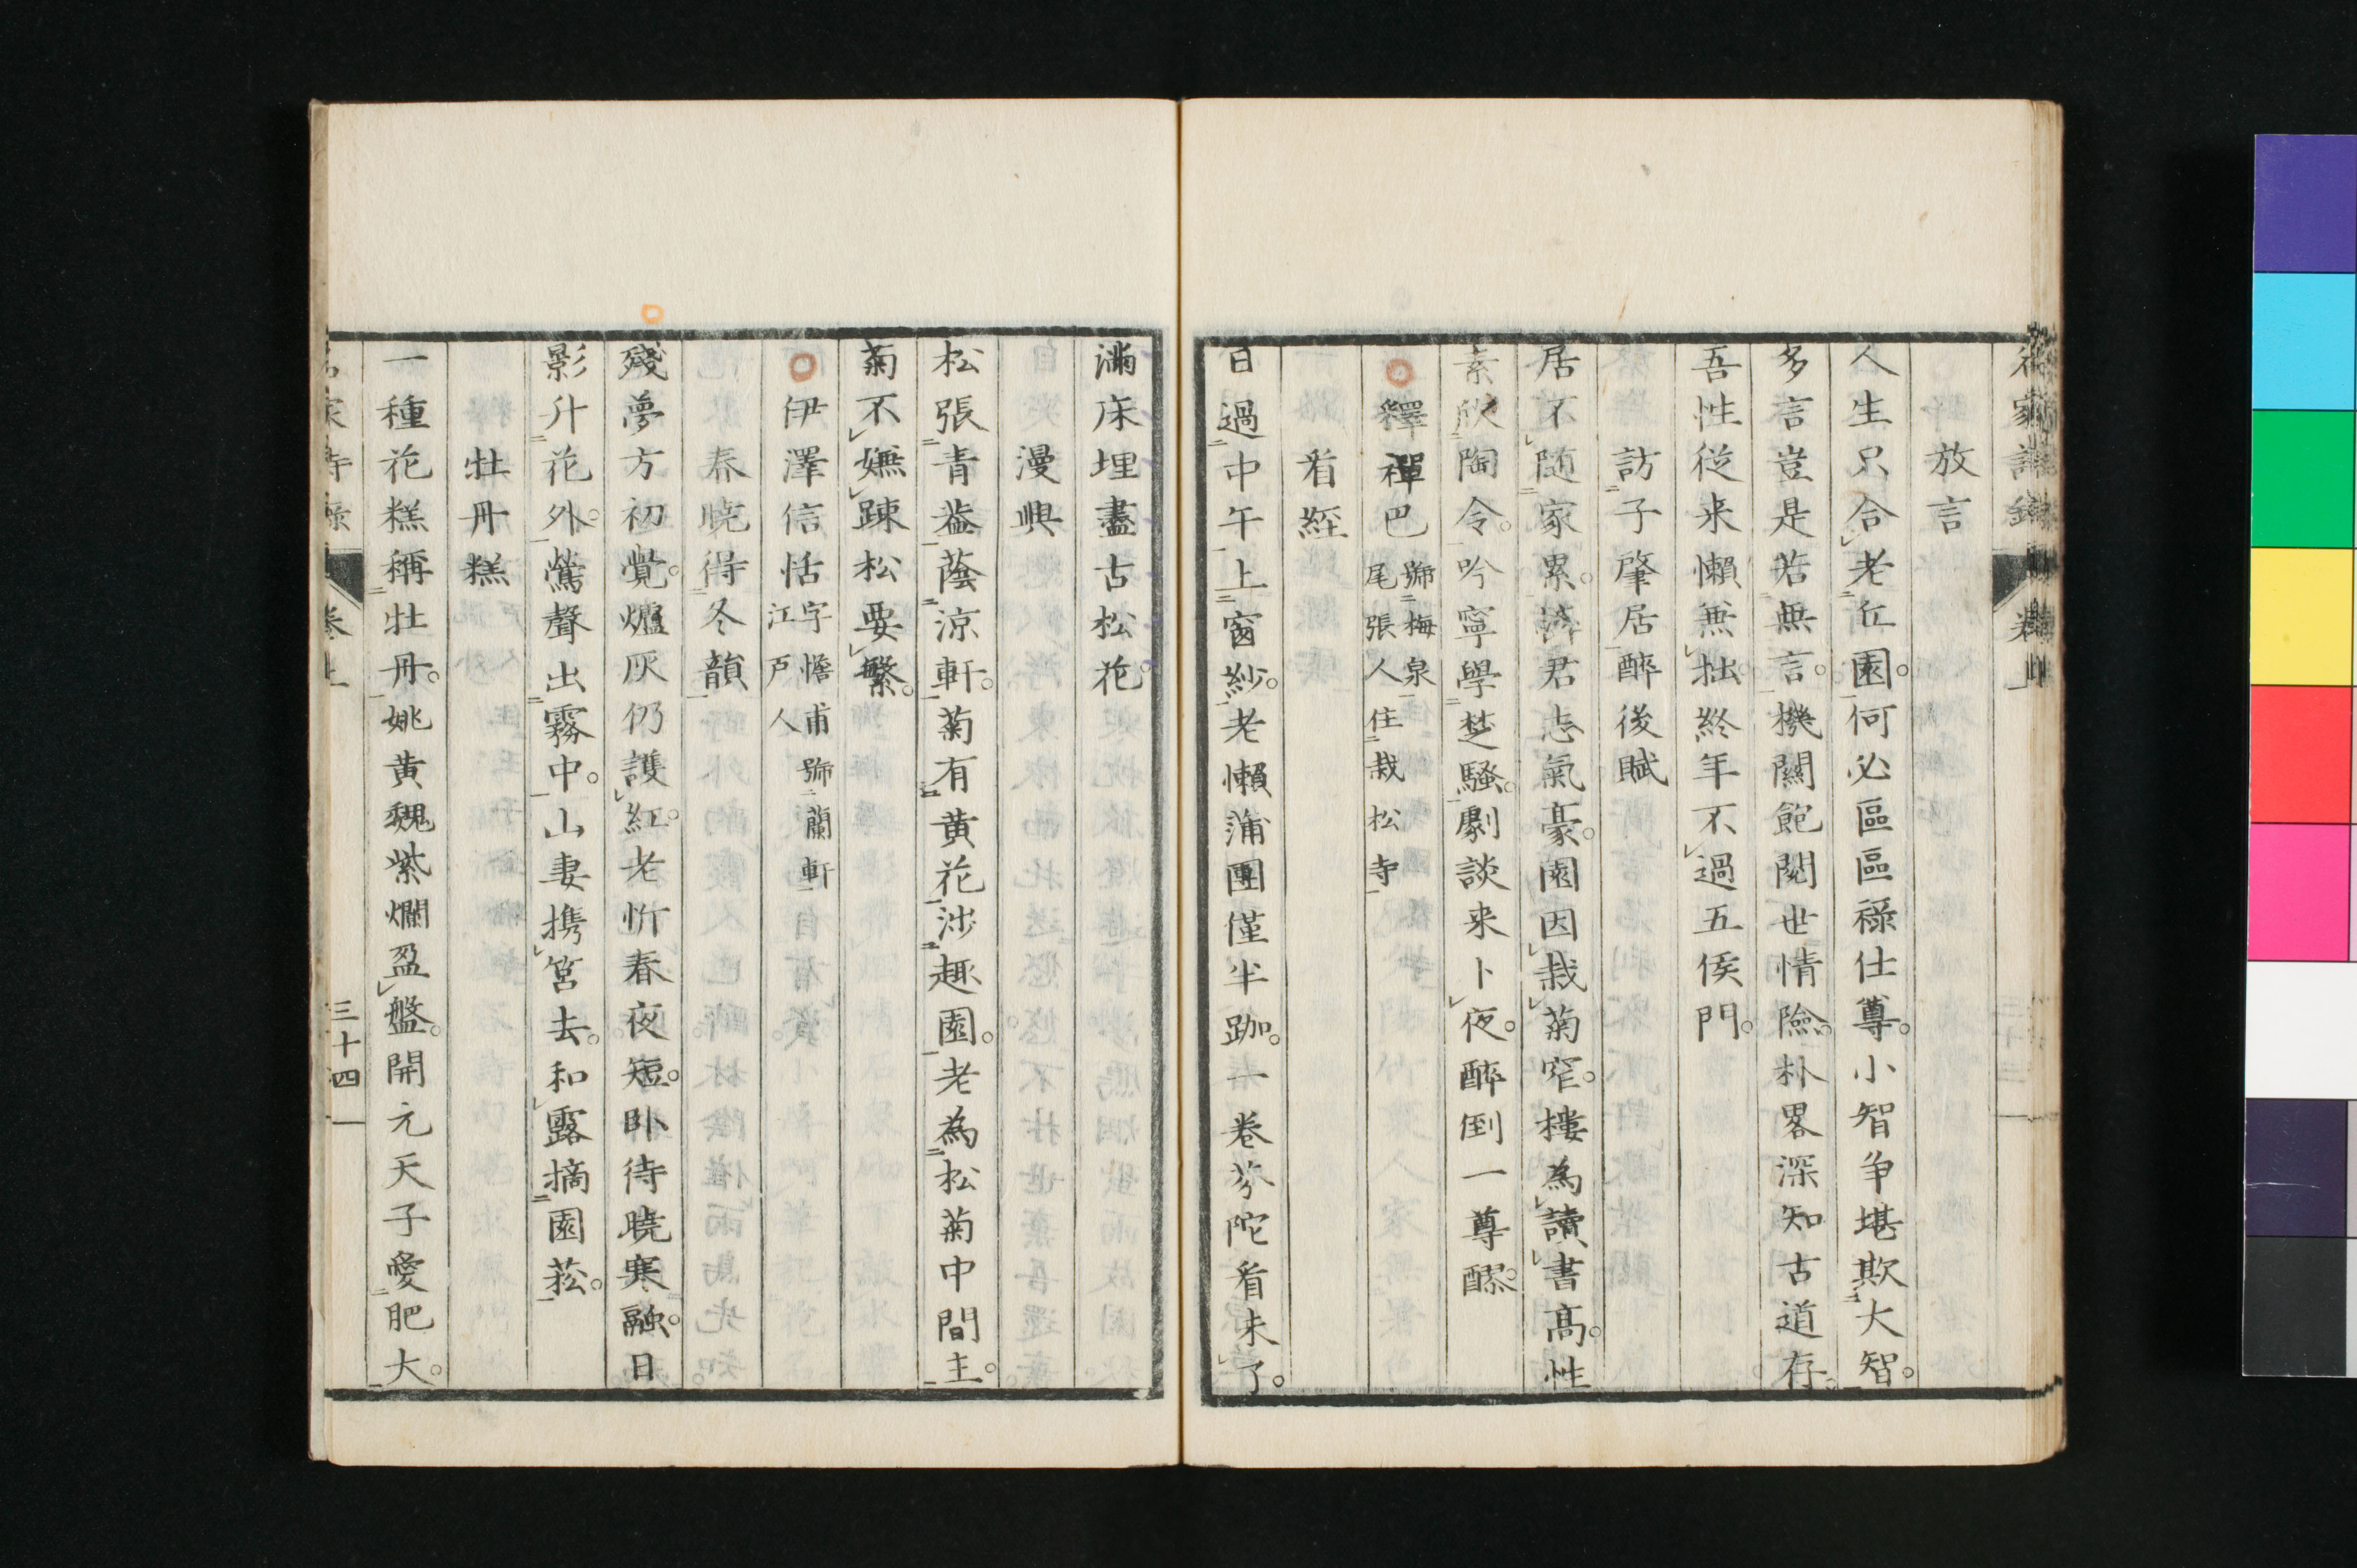 放言
人生只合老丘園。何必區區祿仕尊。小智争堪欺大智。
多言豈是若無言。機關飽閲世情險。朴畧深知古道存。
吾性從来懶兼拙。終年不過五侯門。
訪子肇居醉後賦
居不隨家累。君志氣豪。園因栽菊窄。樓為讀書高。性
素欣陶令。吟寧學楚騷。劇談来卜夜。醉倒一尊醪。
釋禪巴 號梅泉
尾張人住栽松寺
看經
日過中午上窗紗。老懶蒲團僅半跏。一卷芬陀看未了。
滿床埋盡古松花。
漫興
松張青蓋蔭涼軒。菊有黄花渉趣園。老為松菊中間主。
菊不嫌踈松要繁。
伊澤信恬 字憺甫號蘭軒
江戸人
春曉得冬韻
殘夢方初覺。爐灰仍護紅。老忻春夜短。卧待曉寒融。日
影升花外。鶯聲出霧中。山妻携筥去。和露摘園菘。
牡丹糕
一種花糕稱牡丹。姚黄魏紫爛盈盤。開元天子愛肥大。
卷上
三十四